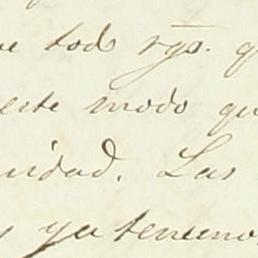 todo
este modo qu
nidad. Las
ya tenemos